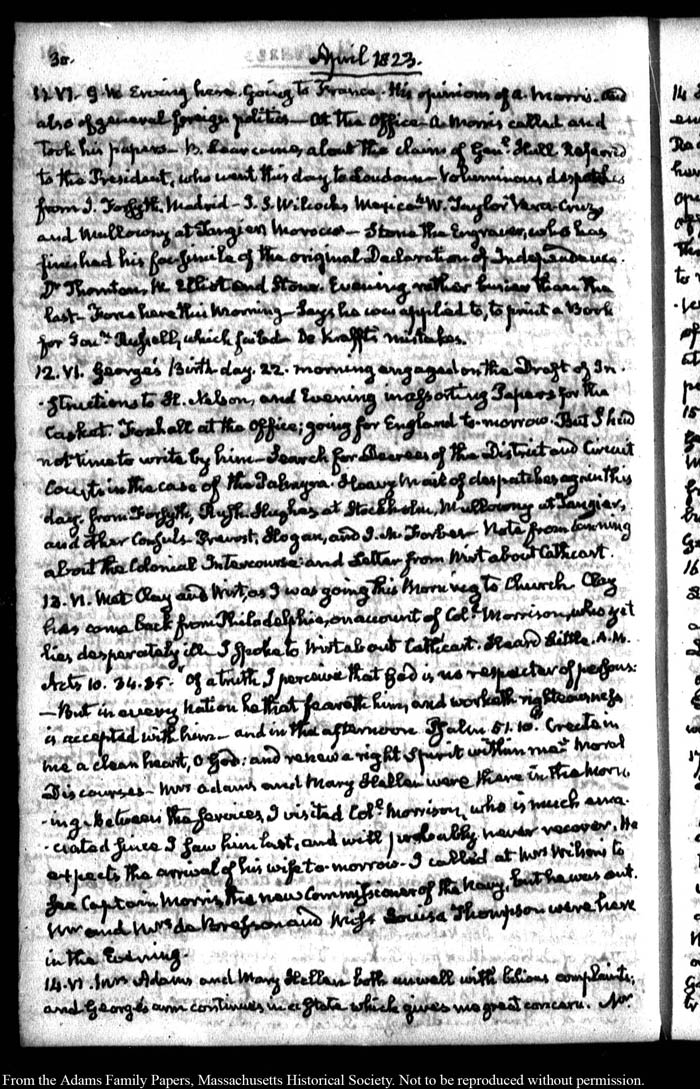 30.
April 1823.
11. VI. G. W. Erving here. Going to France. His opinions of A. Morris. and
also of general foreign politics — At the Office A. Morris called and
took his papers — B. Lear came, about the claim of Genl. Hull Referred
to the President, who went this day to Loudoun — Voluminous despatches
from J. Forsyth. Madrid — J. S. Wilcocks Mexico W. Taylor Vera-Cruz
and Mullowny at Tangier Morocco — Stone the Engraver, who has
finished his facsimile of the original Declaration of Independence.
Dr. Thornton, W. Elliot and Stone. Evening rather busier than the
last. Force here this Morning — Says he was applied to, to print a Book
for Russell, which failed De Krafft's mistakes.
12. VI. George's Birth day. 22. morning engaged on the Draft of In-
-structions to H. Nelson, and Evening in assorting Papers for the
Casket. Foxhall at the Office; going for England to-morrow. But I had
not time to write by him — Search for Decrees of the District and Circuit
Courts in the case of the Palmyra. Heavy mail of despatches again this
day. from Forsyth, Hughes, at Stockholm, Mullowny at Tangier,
and other Consuls. Prevost, Hogan, and J. M. Forbes. Note from Canning
about the Colonial Intercourse: and Letter from Wirt about Cathcart.
13. VI. Met Clay and Wirt, as I was going this Morning to Church. Clay
has come back from Philadelphia, on account of Coll. Morrison, who yet
lies desperately ill. I spoke to Wirt about Cathcart. Heard Little. A.M.
Acts 10. 34. 35. "Of a truth I perceive that God is no respecter of persons:
— But in every Nation he that feareth him, and worketh righteousness
is accepted with him — and in the afternoon Psalm 51. 10. Create in
me a clean heart, O God: and renew a right Spirit within me." Moral
Discourses — Mrs. Adams and Mary Hellen were there in the Morn-
-ing. Between the Services, I visited Coll. Morrison, who is much ema-
-ciated since I saw him last, and will probably never recover. He
expects the arrival of his wife to-morrow. I called at Mrs. Wilson's to
see Captain Morris, the new Commissioner of the Navy, but he was out.
Mr. and Mrs. de Bresson and Miss Louisa Thompson were here
in the Evening.
14. VI. Mrs. Adams and Mary Hellen both unwell with bilious complaints;
and George's arm continues in a state which gives me great concern. Mr
From the Adams Family Papers, Massachusetts Historical Society. Not to be reproduced without permission.